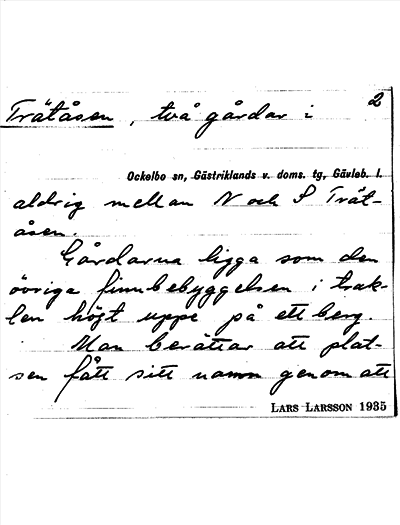 Trätåsen, två gårdar i 2
Ockelbo sn, Gästriklands v. doms. tg, Gävleb. l.
aldrig mellan N och S Trät-
åsen.
Gårdarna ligga som den
övriga finnbebyggelsen i trak-
ten högt uppe på ett berg.
Man berättar att plat-
sen fått sitt namn genom att
LARS LARSSON 1935